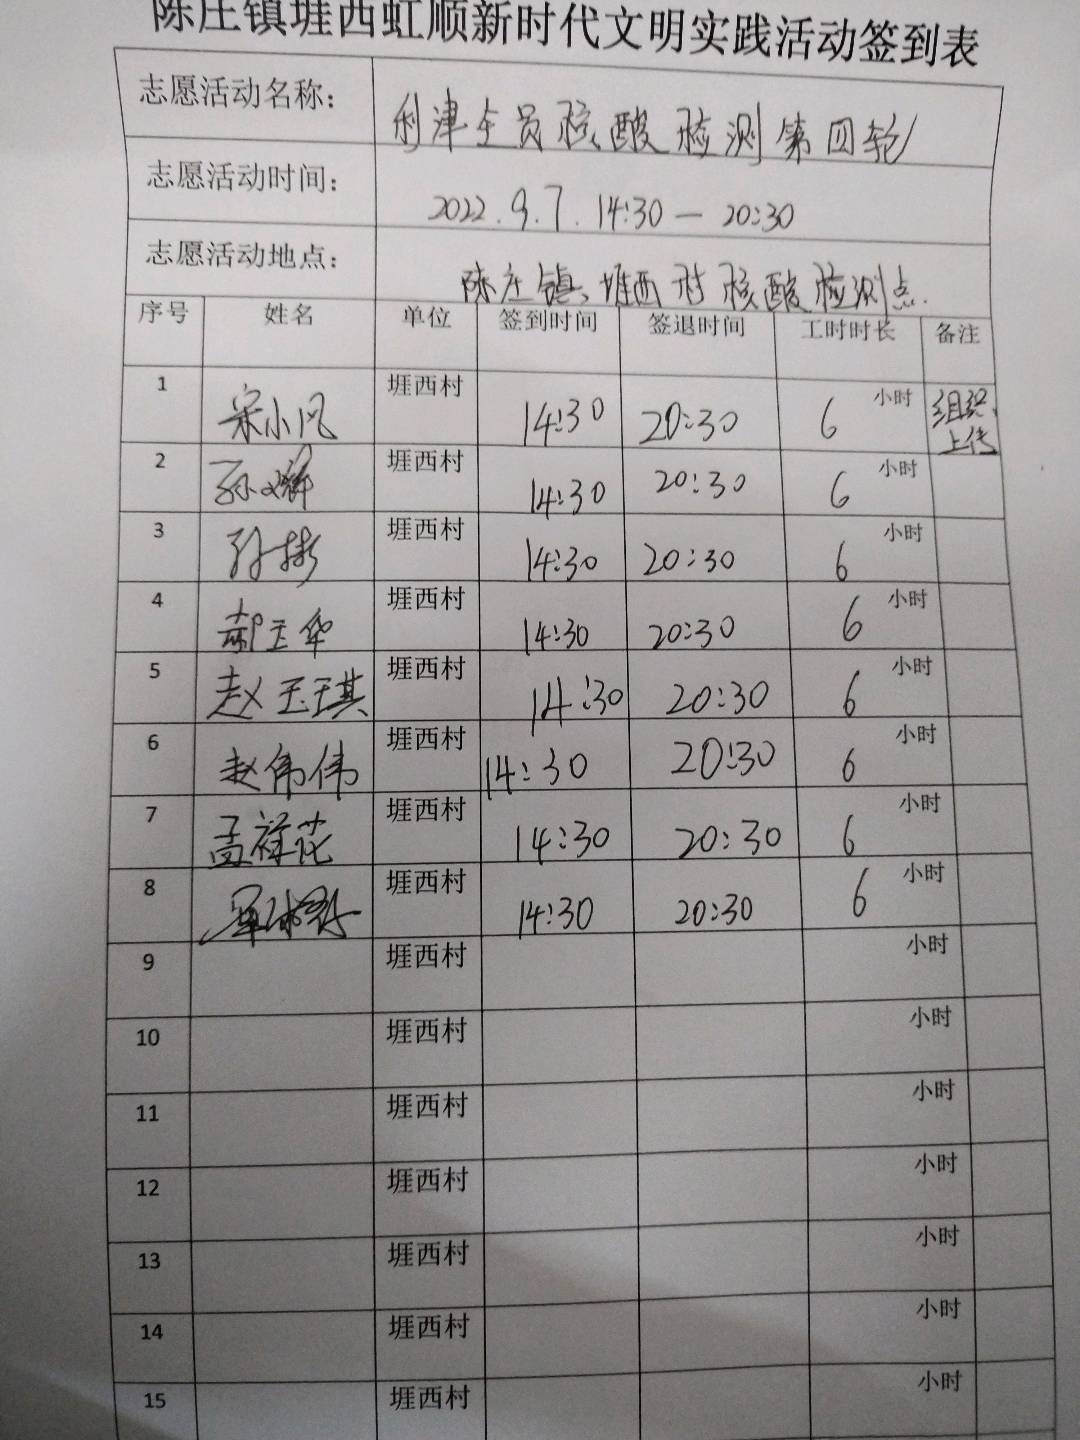 陈庄镇堐西虹顺新时代文明实践活动签到表
志愿活动名称： 利津全员核酸检测第四轮
志愿活动时间： 2022.9.7. 14:30—20:30
志愿活动地点： 陈庄镇、堐西村核酸检测点.
序号 姓名 单位 签到时间 签退时间 工时时长 备注
1 宋小风 堐西村 14:30 20:30 6 小时 组织、上传
2 孙 堐西村 14:30 20:30 6 小时
3 孙彬 堐西村 14:30 20:30 6 小时
4 郝玉华 堐西村 14:30 20:30 6 小时
5 赵玉琪 堐西村 14:30 20:30 6 小时
6 赵伟伟 堐西村 14:30 20:30 6 小时
7 孟祥花 堐西村 14:30 20:30 6 小时
8 堐西村 14:30 20:30 6 小时
9 堐西村 小时
10 堐西村 小时
11 堐西村 小时
12 堐西村 小时
13 堐西村 小时
14 堐西村 小时
15 堐西村 小时